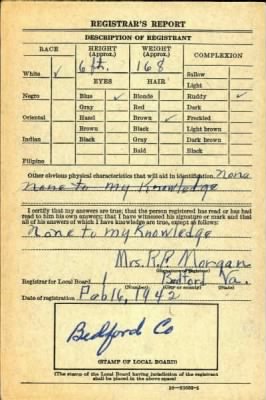 REGISTRAR'S REPORT
DESCRIPTION OF REGISTRANT
RACE
HEIGHT (Approx.)
WEIGHT (Approx.)
COMPLEXION
White ✓
6 ft.
168
Sallow
Light
EYES
HAIR
Negro
Blue ✓
Blonde
Ruddy ✓
Gray
Red
Dark
Oriental
Hazel
Brown ✓
Freckled
Brown
Black
Light brown
Indian
Black
Gray
Dark brown
Bald
Black
Filipino
Other obvious physical characteristics that will aid in identification none
none to my knowledge
I certify that my answers are true; that the person registered has read or has had
read to him his own answers; that I have witnessed his signature or mark and that
all of his answers of which I have knowledge are true, except as follows:
None to my knowledge
Mrs. R.P. Morgan
(Signature of Registrar)
Registrar for Local Board 1 Bedford Va.
(Number) (City or county) (State)
Date of registration Feb 16, 1942
Bedford Co
(STAMP OF LOCAL BOARD)
(The stamp of the Local Board having jurisdiction of the registrant
shall be placed in the above space)